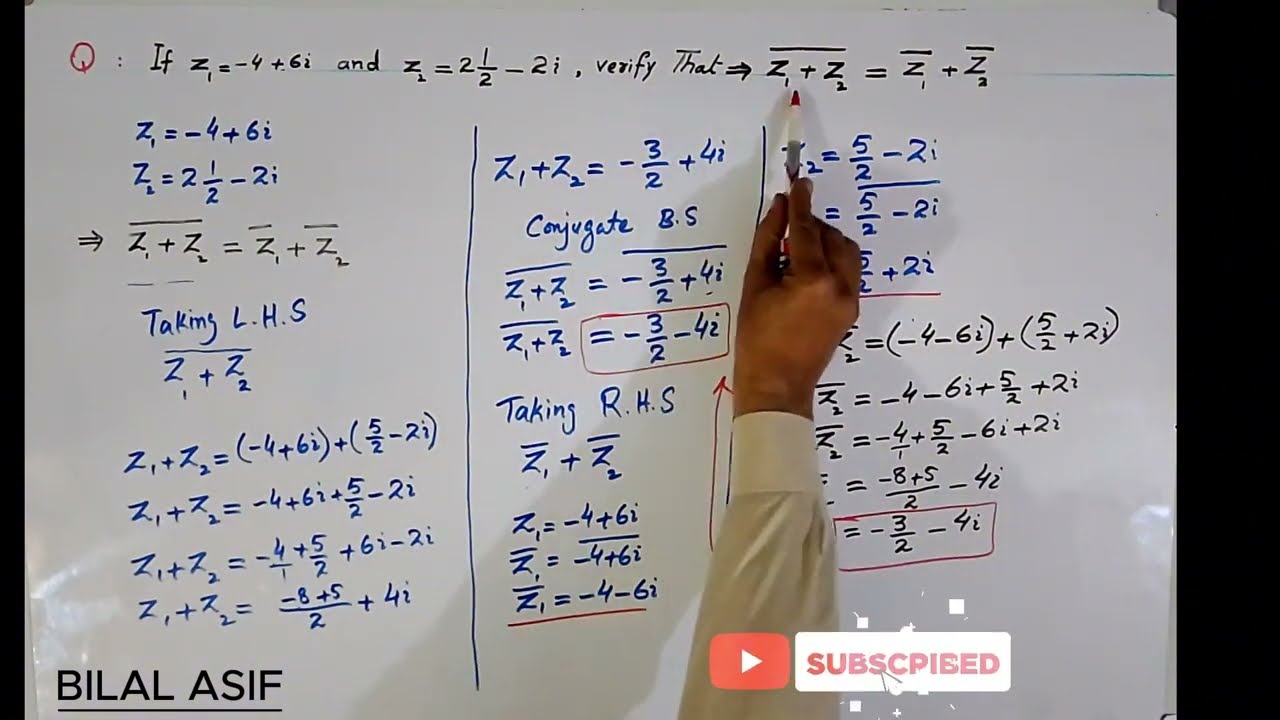 Q : If z₁ = -4 + 6i and z₂ = 2 1/2 - 2i , verify That ⇒ \overline{z₁ + z₂} = \overline{z₁} + \overline{z₂}
z₁ = -4 + 6i
z₂ = 2 1/2 - 2i
⇒ \overline{z₁ + z₂} = \overline{z₁} + \overline{z₂}
Taking L.H.S
\overline{z₁ + z₂}
z₁ + z₂ = (-4+6i) + (5/2 - 2i)
z₁ + z₂ = -4 + 6i + 5/2 - 2i
z₁ + z₂ = -4/1 + 5/2 + 6i - 2i
z₁ + z₂ = -8+5/2 + 4i
z₁ + z₂ = -3/2 + 4i
Conjugate B.S
\overline{z₁ + z₂} = \overline{-3/2 + 4i}
\overline{z₁ + z₂} = -3/2 - 4i
Taking R.H.S
\overline{z₁} + \overline{z₂}
z₁ = -4 + 6i
\overline{z₁} = \overline{-4+6i}
\overline{z₁} = -4 - 6i
₂ = 5/2 - 2i
= \overline{5/2 - 2i}
/2 + 2i
\overline{z₂} = (-4 - 6i) + (5/2 + 2i)
\overline{z₂} = -4 - 6i + 5/2 + 2i
\overline{z₂} = -4/1 + 5/2 - 6i + 2i
= -8+5/2 - 4i
= -3/2 - 4i
BILAL ASIF